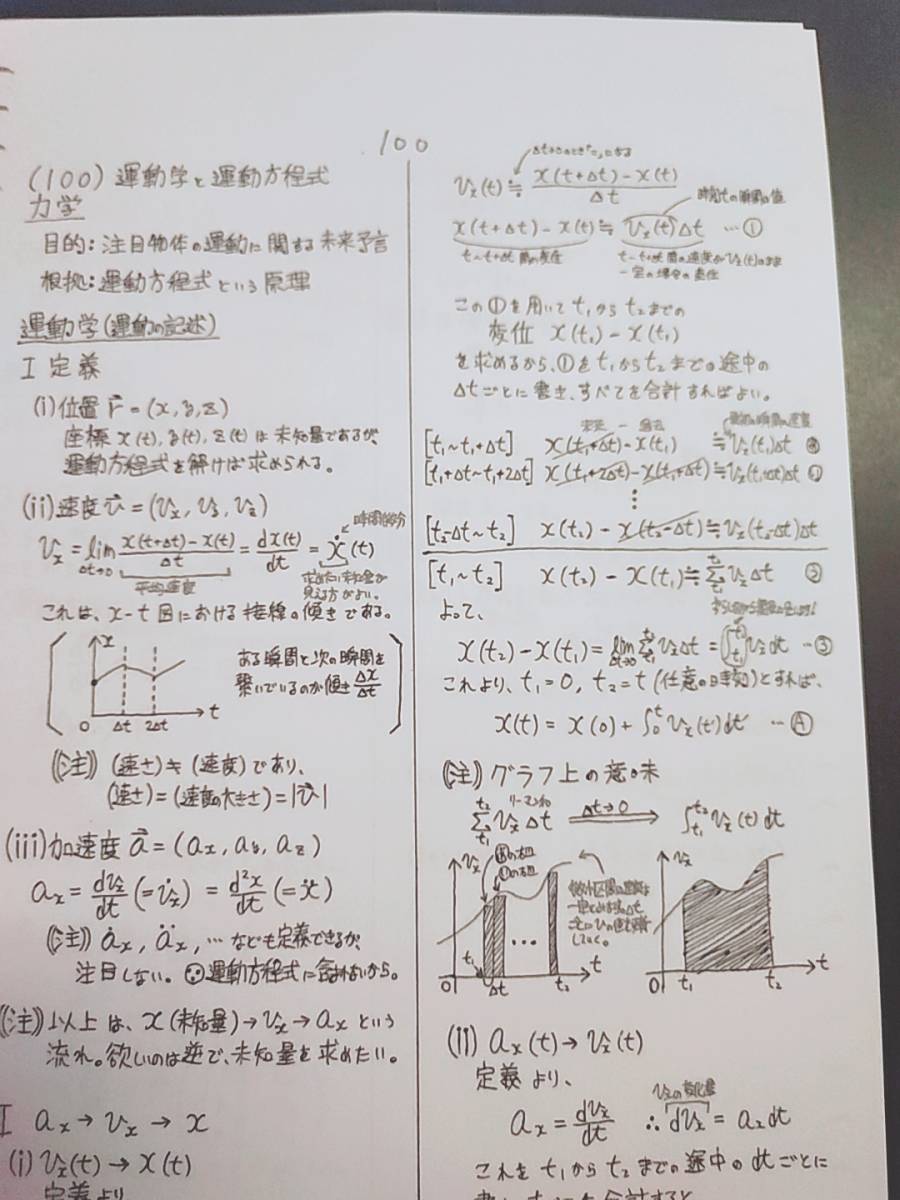 100
(100) 運動学と運動方程式
力学
目的:注目物体の運動に関する未来予言
根拠:運動方程式という原理
運動学(運動の記述)
I 定義
(i)位置 r⃗=(x,y,z)
座標 x(t),y(t),z(t) は未知量であるが、
運動方程式を解けば求められる。
(ii)速度 v⃗=(vx,vy,vz)
時間微分
vx=lim Δt→0 x(t+Δt)-x(t)/Δt = dx(t)/dt = ẋ(t)
平均速度
求めたい未知量が
見える方がよい。
これは、x-t図における接線の傾きである。
x
ある瞬間と次の瞬間を
繋いでいるのが傾き Δx/Δt
0 Δt 2Δt t
(注) (速さ)≠(速度)であり、
(速さ)=(速度の大きさ)=|v⃗|
(iii)加速度 a⃗=(ax,ay,az)
ax=dvx/dt(=v̇x)=d²x/dt²(=ẍ)
(注) ȧx, äx, …なども定義できるが、
注目しない。∵運動方程式に含まれないから。
(注) 以上は、x(未知量)→vx→axという
流れ。欲しいのは逆で、未知量を求めたい。
I ax→vx→x
(i) vx(t)→x(t)
定義より
Δt→0のとき「=」になる
vx(t)≒ x(t+Δt)-x(t)/Δt
時刻tの瞬間の値
x(t+Δt)-x(t)≒vx(t)Δt …①
t~t+Δt間の変位
t~t+Δt間の速度がvx(t)のまま
一定の場合の変位
この①を用いてt1からt2までの
変位 x(t2)-x(t1)
を求めるから、①をt1からt2までの途中の
Δtごとに書き、すべてを合計すればよい。
未来 - 過去
[t1~t1+Δt] x(t1+Δt)-x(t1) ≒vx(t1)Δt
[t1+Δt~t1+2Δt] x(t1+2Δt)-x(t1+Δt)≒vx(t1+Δt)Δt
⋮
[t2-Δt~t2] x(t2)-x(t2-Δt)≒vx(t2-Δt)Δt
[t1~t2] x(t2)-x(t1)≒Σ t1 t2 vxΔt ②
よって、
x(t2)-x(t1)=lim Δt→0 Σ t1 t2 vxΔt=∫t1 t2 vx dt …③
これより、t1=0, t2=t(任意の時刻)とすれば、
x(t)=x(0)+∫0 t vx(t)dt …Ⓐ
(注) グラフ上の意味
リーマン和
Σ t1 t2 vxΔt Δt→0 ∫t1 t2 vx(t)dt
vx
の右辺
の右辺
微小区間の速度は
一定とみなすΔt
していく。
0 t1 Δt … t2 t
vx
0 t1 t2 t
(ii) ax(t)→vx(t)
定義より、
vxの変化量
ax=dvx/dt ∴dvx=axdt
これをt1からt2までの途中のdtごとに